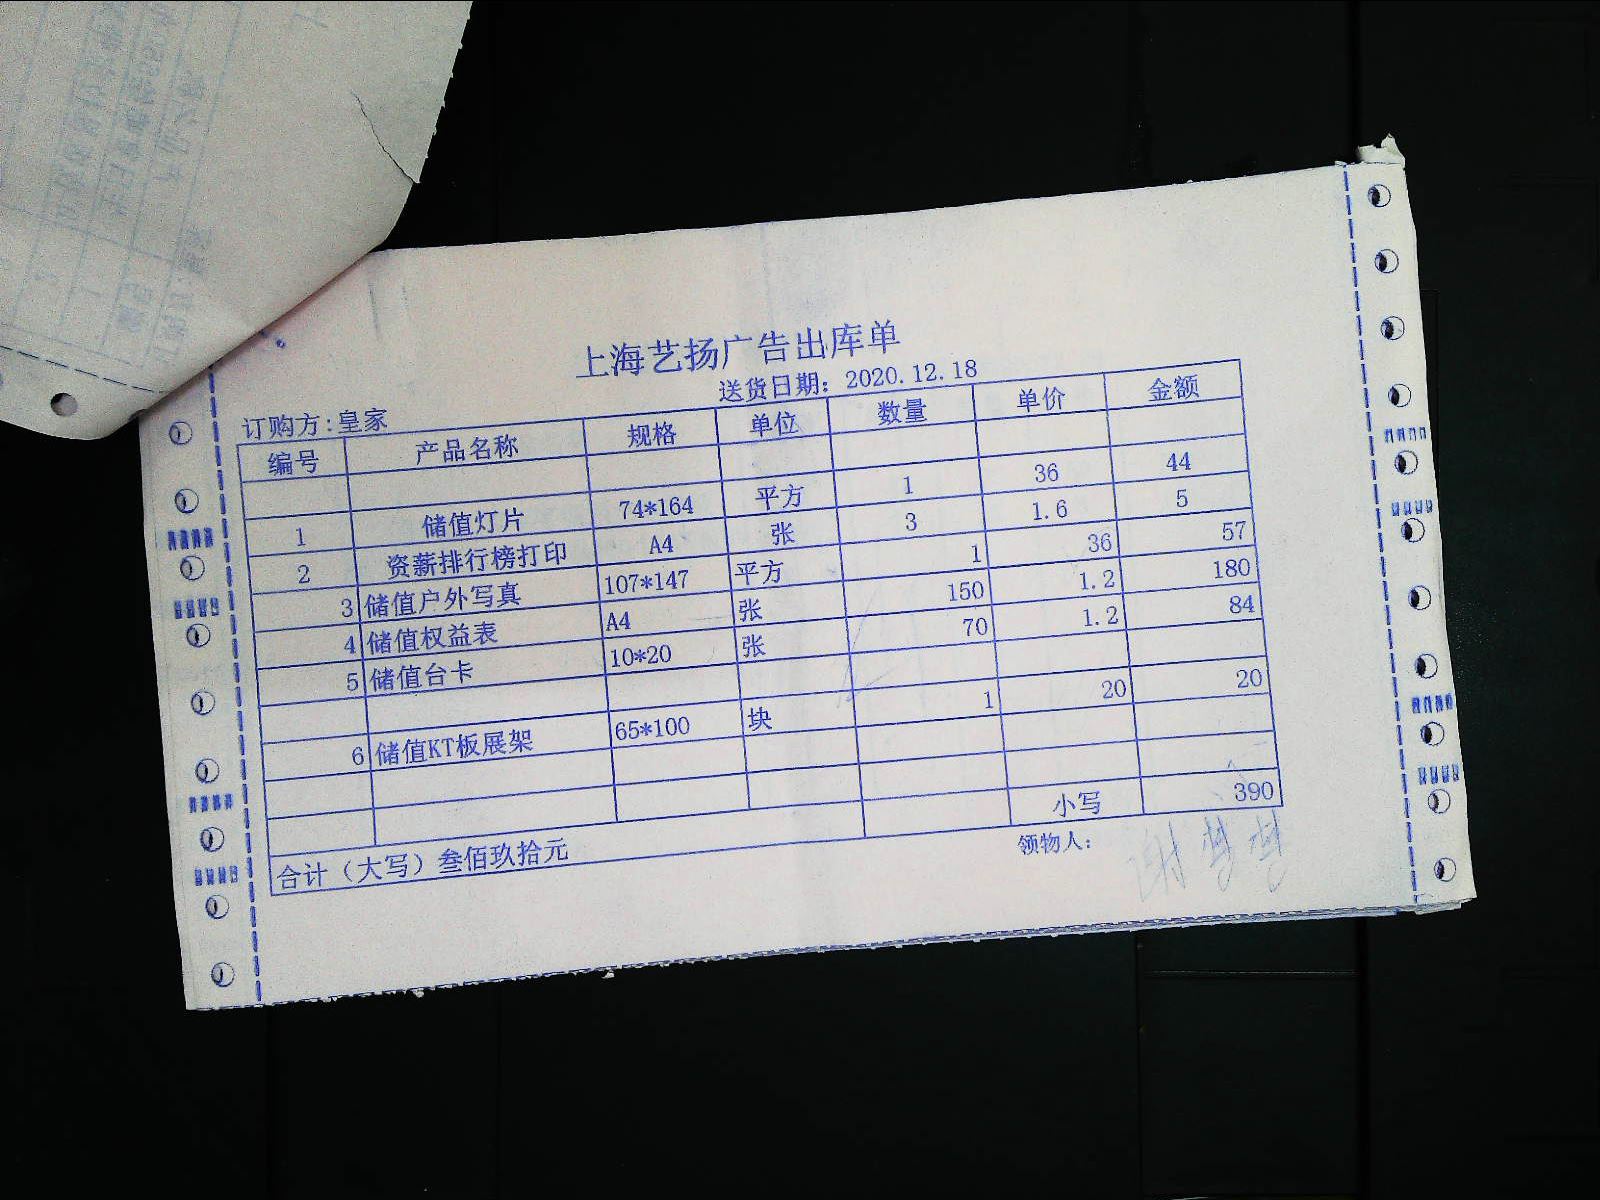 上海艺扬广告出库单
送货日期: 2020.12.18
订购方:皇家
编号 产品名称 规格 单位 数量 单价 金额
1 储值灯片 74*164 平方 1 36 44
2 资薪排行榜打印 A4 张 3 1.6 5
3 储值户外写真 107*147 平方 1 36 57
4 储值权益表 A4 张 150 1.2 180
5 储值台卡 10*20 张 70 1.2 84
6 储值KT板展架 65*100 块 1 20 20
合计（大写）叁佰玖拾元 小写 390
领物人: 谢梦梦